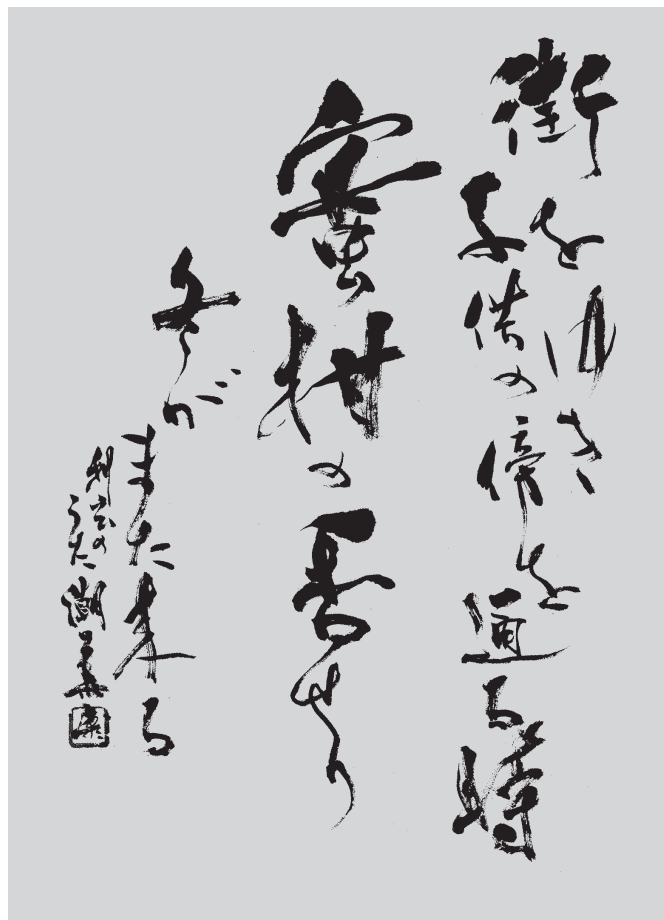 街をゆき
子供の傍を通る時
蜜柑の香せり
冬がまた来る
利玄の
うた